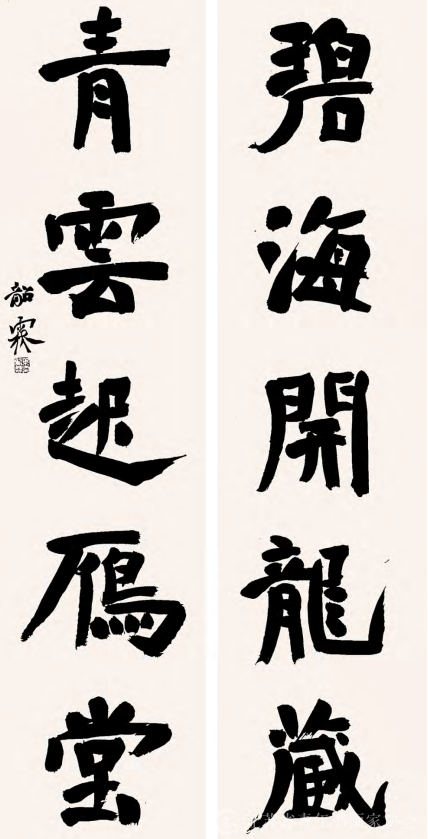 碧海開龍藏
青雲起鴈堂
韶霖